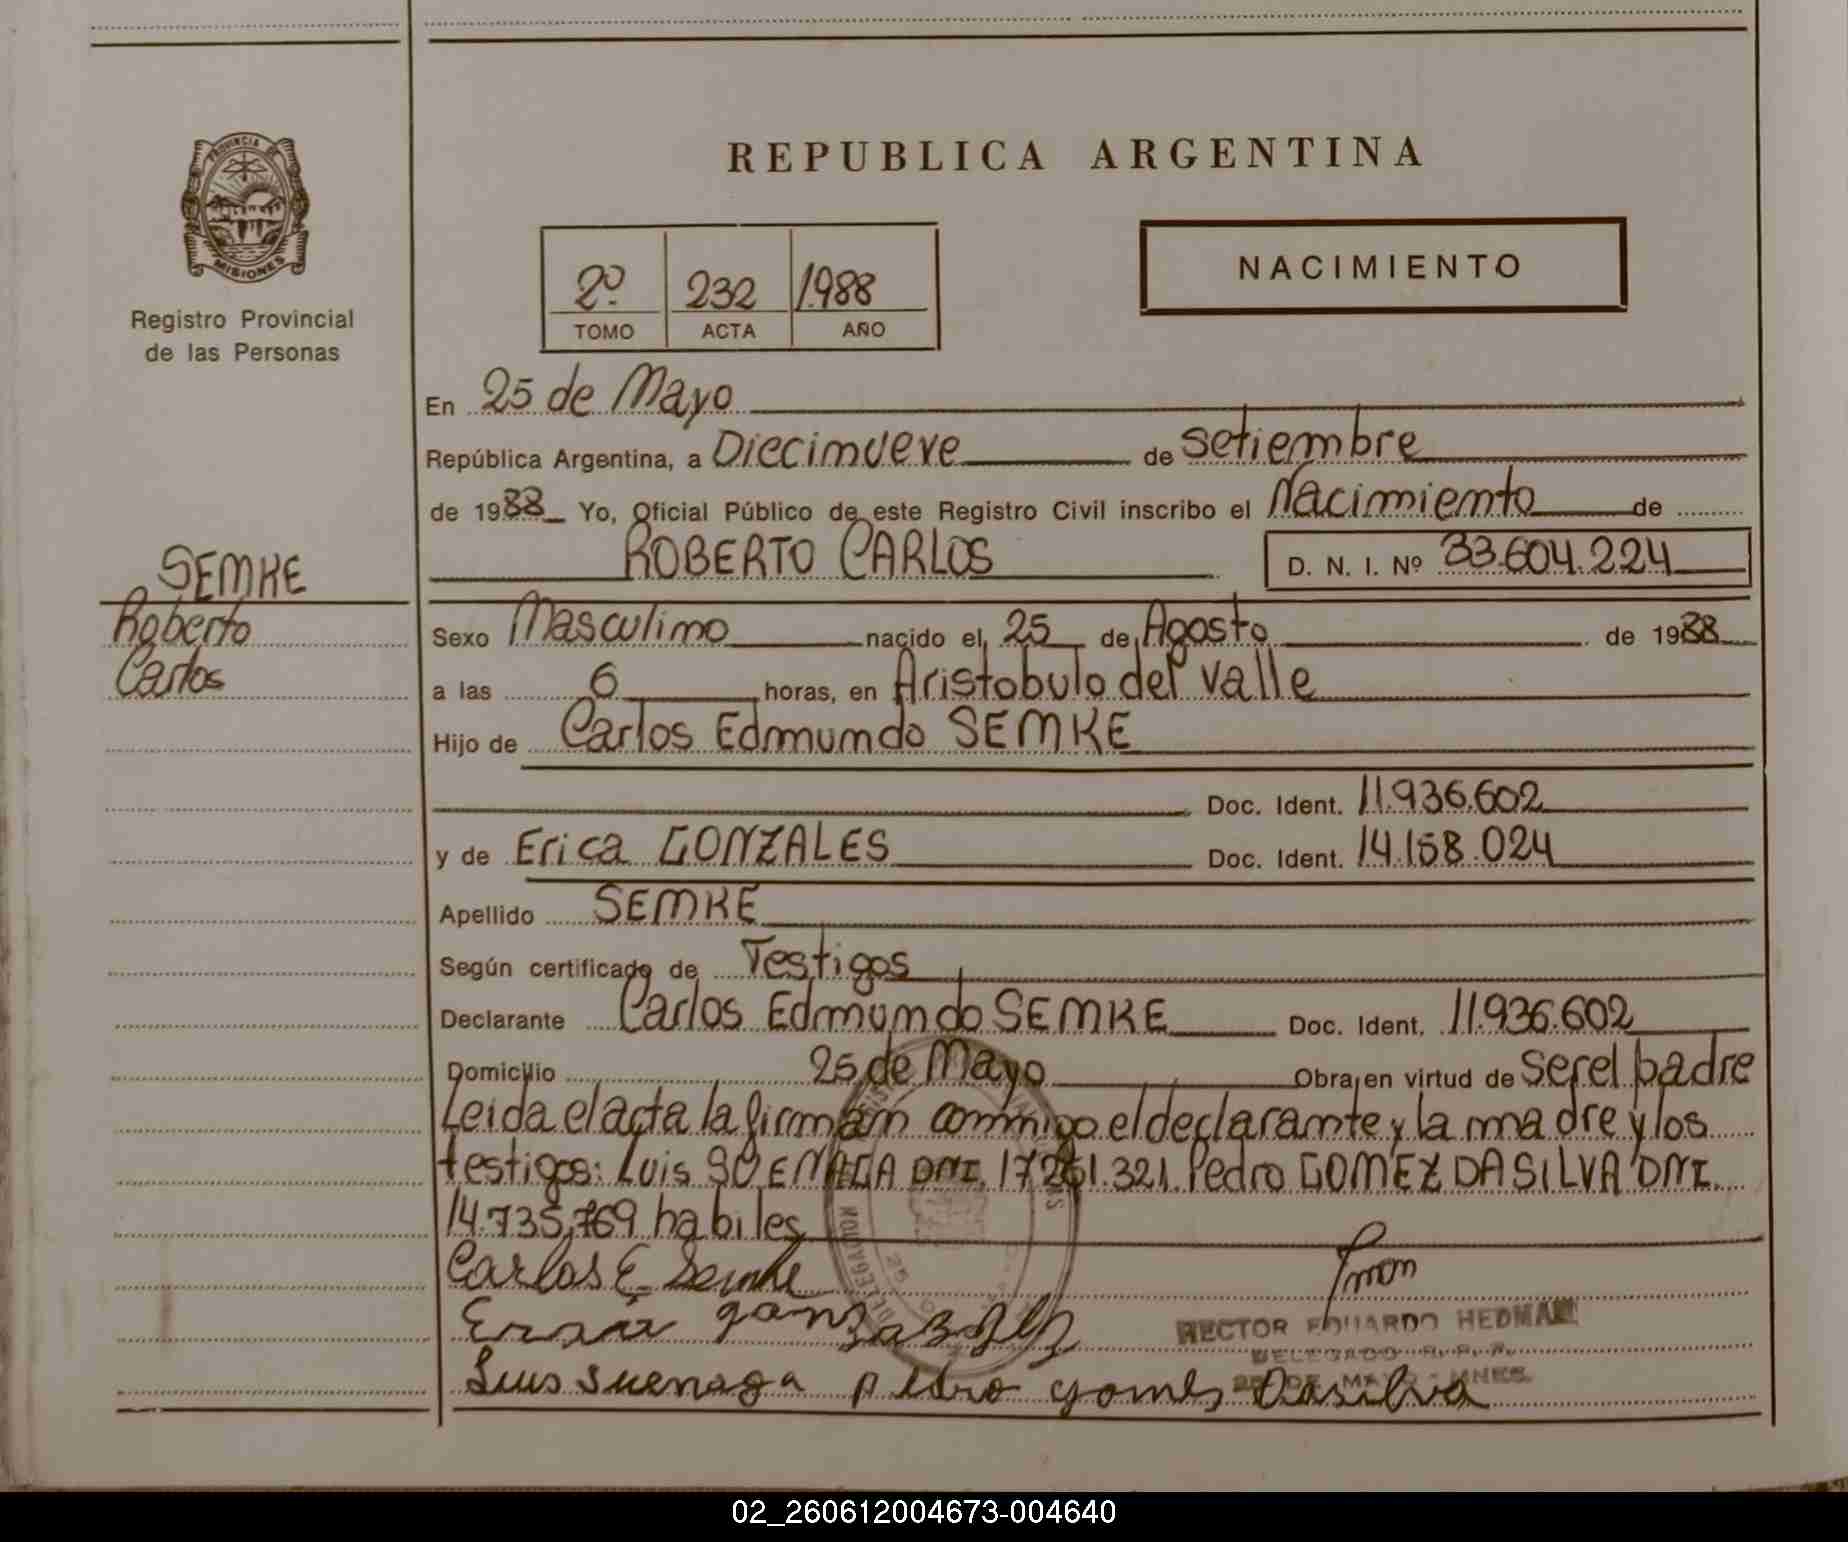 REPUBLICA ARGENTINA
PROVINCIA DE
MISIONES
Registro Provincial
de las Personas
2º 232 1988
TOMO ACTA AÑO
NACIMIENTO
En 25 de Mayo
República Argentina, a Diecinueve de setiembre
de 1988 Yo, Oficial Público de este Registro Civil inscribo el Nacimiento de
ROBERTO CARLOS D. N. I. Nº 33.604.224
SEMKE
Roberto
Carlos
Sexo Masculino nacido el 25 de Agosto de 1988
a las 6 horas, en Aristobulo del valle
Hijo de Carlos Edmundo SEMKE
Doc. Ident. 11.936.602
y de Erica GONZALES Doc. Ident. 14.168.024
Apellido SEMKE
Según certificado de Testigos
Declarante Carlos Edmundo SEMKE Doc. Ident. 11.936.602
Domicilio 25 de Mayo Obra en virtud de ser el padre
Leida el acta la firman conmigo el declarante y la madre y los
testigos: Luis SUENAGA DNI. 17261.321. Pedro GOMEZ DASILVA DNI.
14.735.769 habiles
Carlos E Semke
HECTOR EDUARDO HEDMAN
DELEGADO R. P. P.
25 DE MAYO - MNES.
Luis Suenaga Pedro gomes Dasilva
02_260612004673-004640